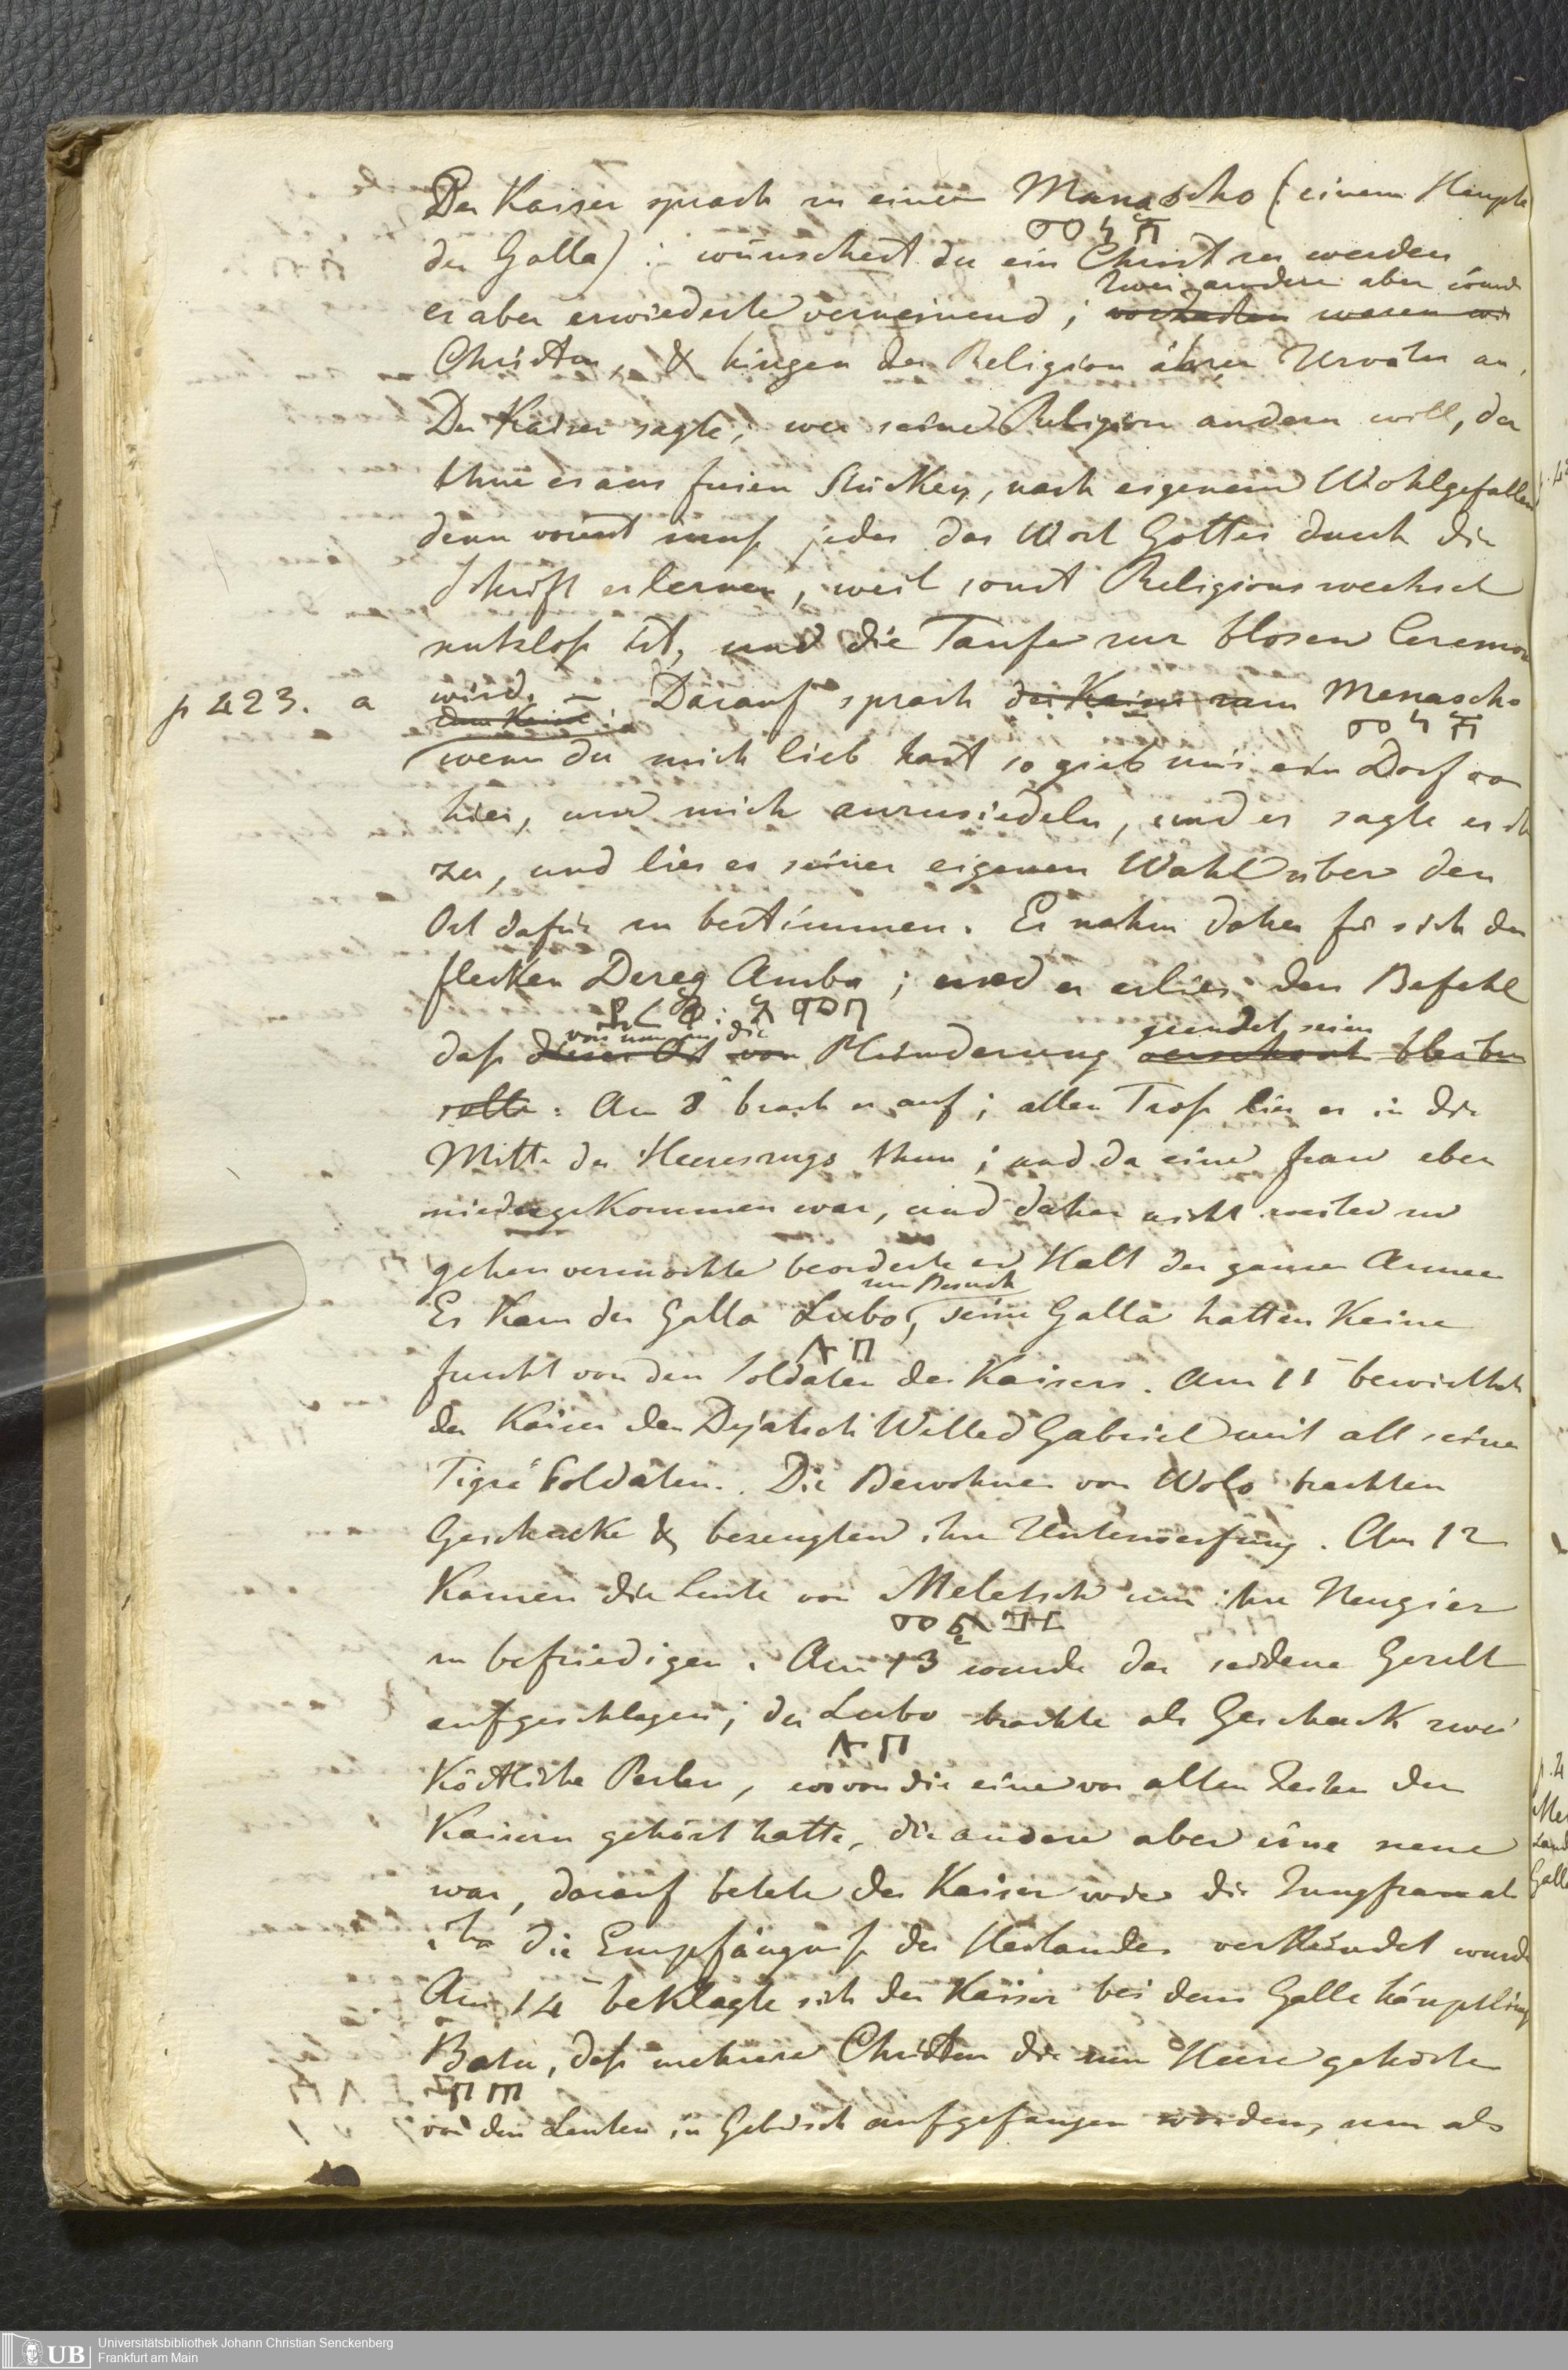 Der Kaiser sprach zu einem Manascho (: einem Haupte
መናሾ
der Galla) : wünschest du ein Christ zu werden
zwei andere aber sind
er aber erwiederte verneinend ; waren
Christen, & hingen der Religion ihrer Urväter an.
Der Kaiser sagte, wer seine Religion andern will, der
thue es aus freien Stücken, nach eigenem Wohlgefallen
denn sonst muß jeder das Wort Gottes durch die
Schrift erlernen, weil sonst Religionswechsel
nutzloß ist, und die Taufe zur blosen Ceremon
p 423. a wird. – Darauf sprach der Kaiser zum Menascho
dem Kaiser
መናሾ
wenn du mich lieb hast so gieb mir ein Dorf
hier, um mich anzusiedeln, und er sagte es ih
zu, und lies es seiner eigenen Wahl über den
Ort dafür zu bestimmen. Er nahm daher für sich den
flecken Dereq Amba ; und er erlies den Befehl
ደረቅ : አምባ
von nun an die geendet seien
daß dieser Ort von Plünderung verschont bleiben
solle. Am 8 brach er auf ; allen Troß lies er in die
Mitte des Heereszugs thun ; und da eine frau eben
niedergekommen war, und daher nicht weiter zu
gehen vermochte beorderte er Halt der ganzen Armee
zum Besuch
Es kam der Galla Lubo, seine Galla hatten keine
ሉቦ
furcht von den Soldaten des Kaisers. Am 11 bewirthete
der Kaiser den Dejatsch Welled Gabriel mit all seinen
Tigré Soldaten. Die Bewohner von Wolo brachten
Geschencke & bezeugten ihre Unterwerfung. Am 12
kamen die Leute von Meletsch um ihre Neugier
zu befriedigen. Am 13 wurde das seidene Gezelt
aufgeschlagen ; der Lubo brachte als Geschenk zwei
ሉቦ
köstliche Perlen, wovon die eine vor alten Zeiten den
Kaisern gehört hatte, die andere aber eine neue
war, darauf betete der Kaiser wie die Jungfrau als
ihr die Empfängniß des Heilandes verkündet wurde
Am 14 beklagte sich der Kaiser bei dem Galla häuptling
Batu, daß mehrere Christen die zum Heere gehörten
von den Leuten in Gebüsch aufgefangen worden, um als
Universitätsbibliothek Johann Christian Senckenberg
Frankfurt am Main
UB